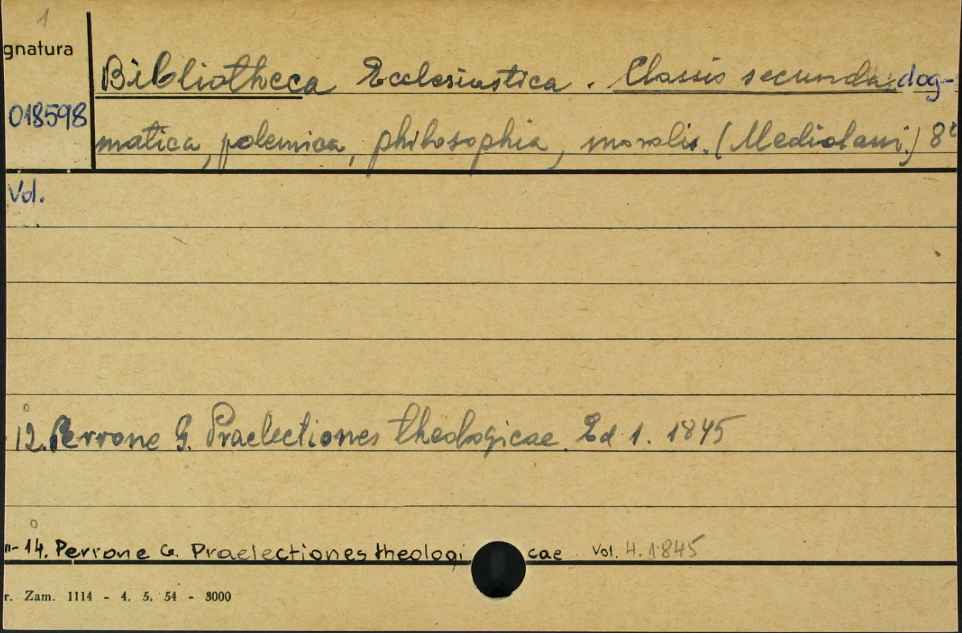 1
gnatura
Bibliotheca Ecclesiastica. Classis secunda: dog-
018598
matica, polemica, philosophia, moralis. (Mediolani.) 8°
Vol.
12. Perrone G. Praelectiones theologicae. Ed 1. 1845
"-14. Perrone G. Praelectiones theologicae Vol. 4. 1845
r. Zam. 1114 - 4. 5. 54 - 3000